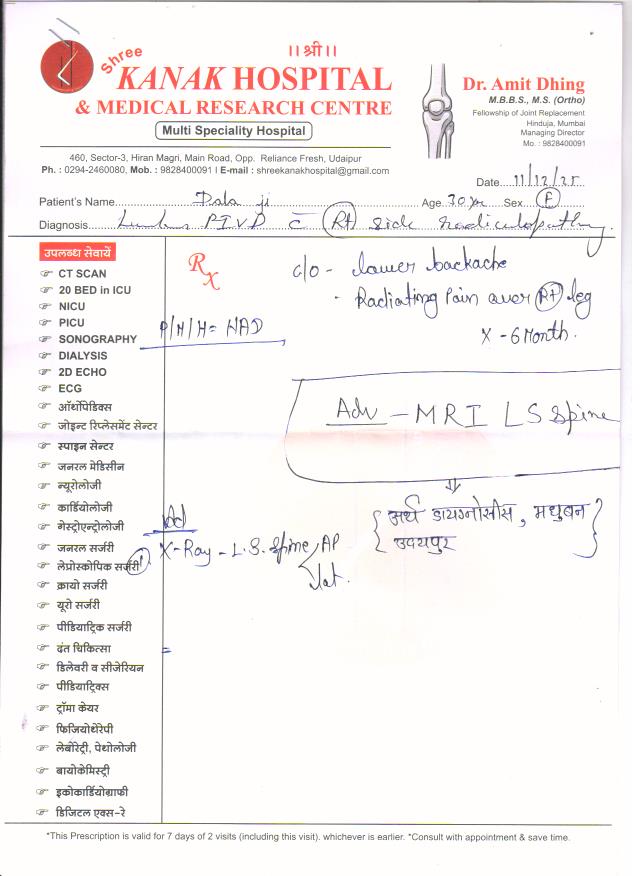 ।। श्री ।।
Shree
KANAK HOSPITAL
& MEDICAL RESEARCH CENTRE
Multi Speciality Hospital
Dr. Amit Dhing
M.B.B.S., M.S. (Ortho)
Fellowship of Joint Replacement
Hinduja, Mumbai
Managing Director
Mo. : 9828400091
460, Sector-3, Hiran Magri, Main Road, Opp. Reliance Fresh, Udaipur
Ph. : 0294-2460080, Mob. : 9828400091 I E-mail : shreekanakhospital@gmail.com
Date 11/12/25
Patient's Name ji Age 30 yr Sex F
Diagnosis Lumbar PIVD c̄ Rt side radiculopathy
उपलब्ध सेवायें
CT SCAN
20 BED in ICU
NICU
PICU
SONOGRAPHY
DIALYSIS
2D ECHO
ECG
ऑर्थोपिडिक्स
जोइन्ट रिप्लेसमेंट सेन्टर
स्पाइन सेन्टर
जनरल मेडिसीन
न्यूरोलोजी
कार्डियोलोजी
गेस्ट्रोएन्ट्रोलोजी
जनरल सर्जरी
लेप्रोस्कोपिक सर्जरी
क्रायो सर्जरी
यूरो सर्जरी
पीडियाट्रिक सर्जरी
दंत चिकित्सा
डिलेवरी व सीजेरियन
पीडियाट्रिक्स
ट्रॉमा केयर
फिजियोथेरेपी
लेबोरेट्री, पेथोलोजी
बायोकेमिस्ट्री
इकोकार्डियोग्राफी
डिजिटल एक्स-रे
Rx
c/o - lower backache
- Radiating Pain over Rt leg
X - 6 Month.
P/H/H = NAD
Adv - MRI LS Spine
{ अर्थ डायग्नोसीस, मधुबन
उदयपुर }
Ad
X-Ray - L.S. Spine AP
lat.
*This Prescription is valid for 7 days of 2 visits (including this visit). whichever is earlier. *Consult with appointment & save time.